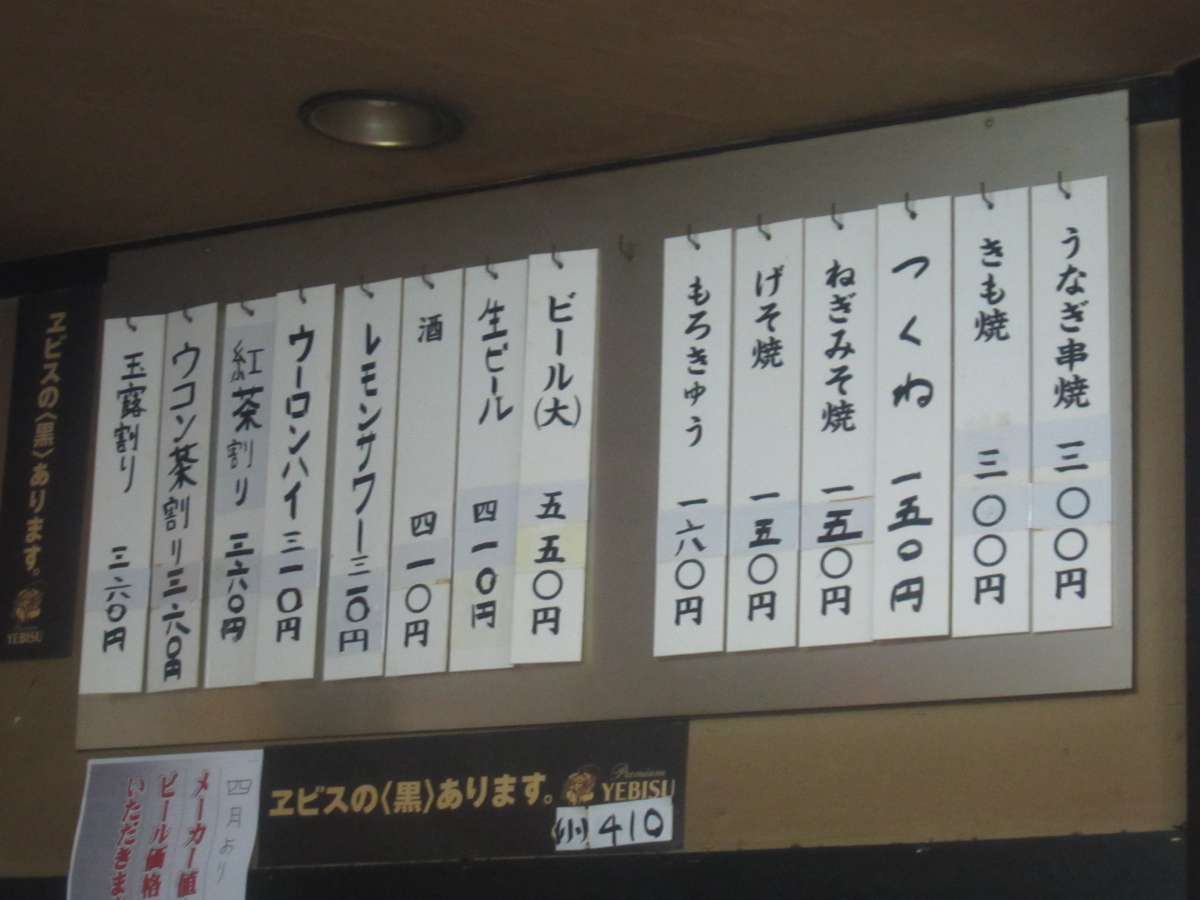 うなぎ串焼 三〇〇円
きも焼 三〇〇円
つくね 一五〇円
ねぎみそ焼 一五〇円
げそ焼 一五〇円
もろきゅう 一六〇円
ビール(大) 五五〇円
生ビール 四一〇円
酒 四一〇円
レモンサワー 三一〇円
ウーロンハイ 三一〇円
紅茶割り 三六〇円
ウコン茶割り 三六〇円
玉露割り 三六〇円
ヱビスの〈黒〉あります。
YEBISU
ヱビスの〈黒〉あります。
Premium
YEBISU
(小) 410
四月より
メーカー値
ビール価格
いただきま